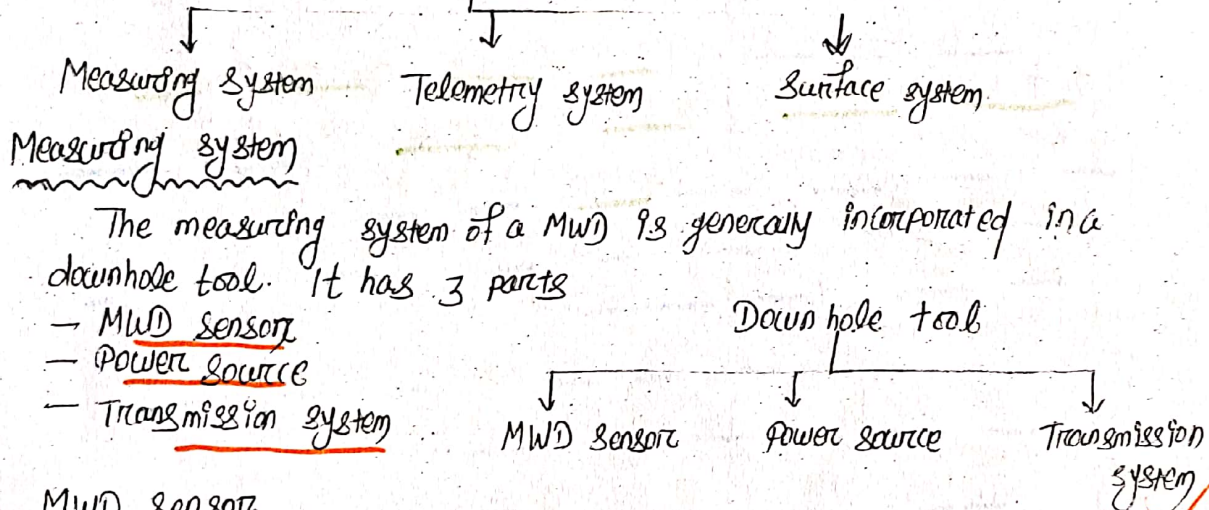 Measuring system Telemetry system Surface system
Measuring system
The measuring system of a MWD is generally incorporated in a
downhole tool. It has 3 parts
— MWD sensor
— Power source
— Transmission system
Down hole tool
MWD sensor Power source Transmission
system
MWD sensor